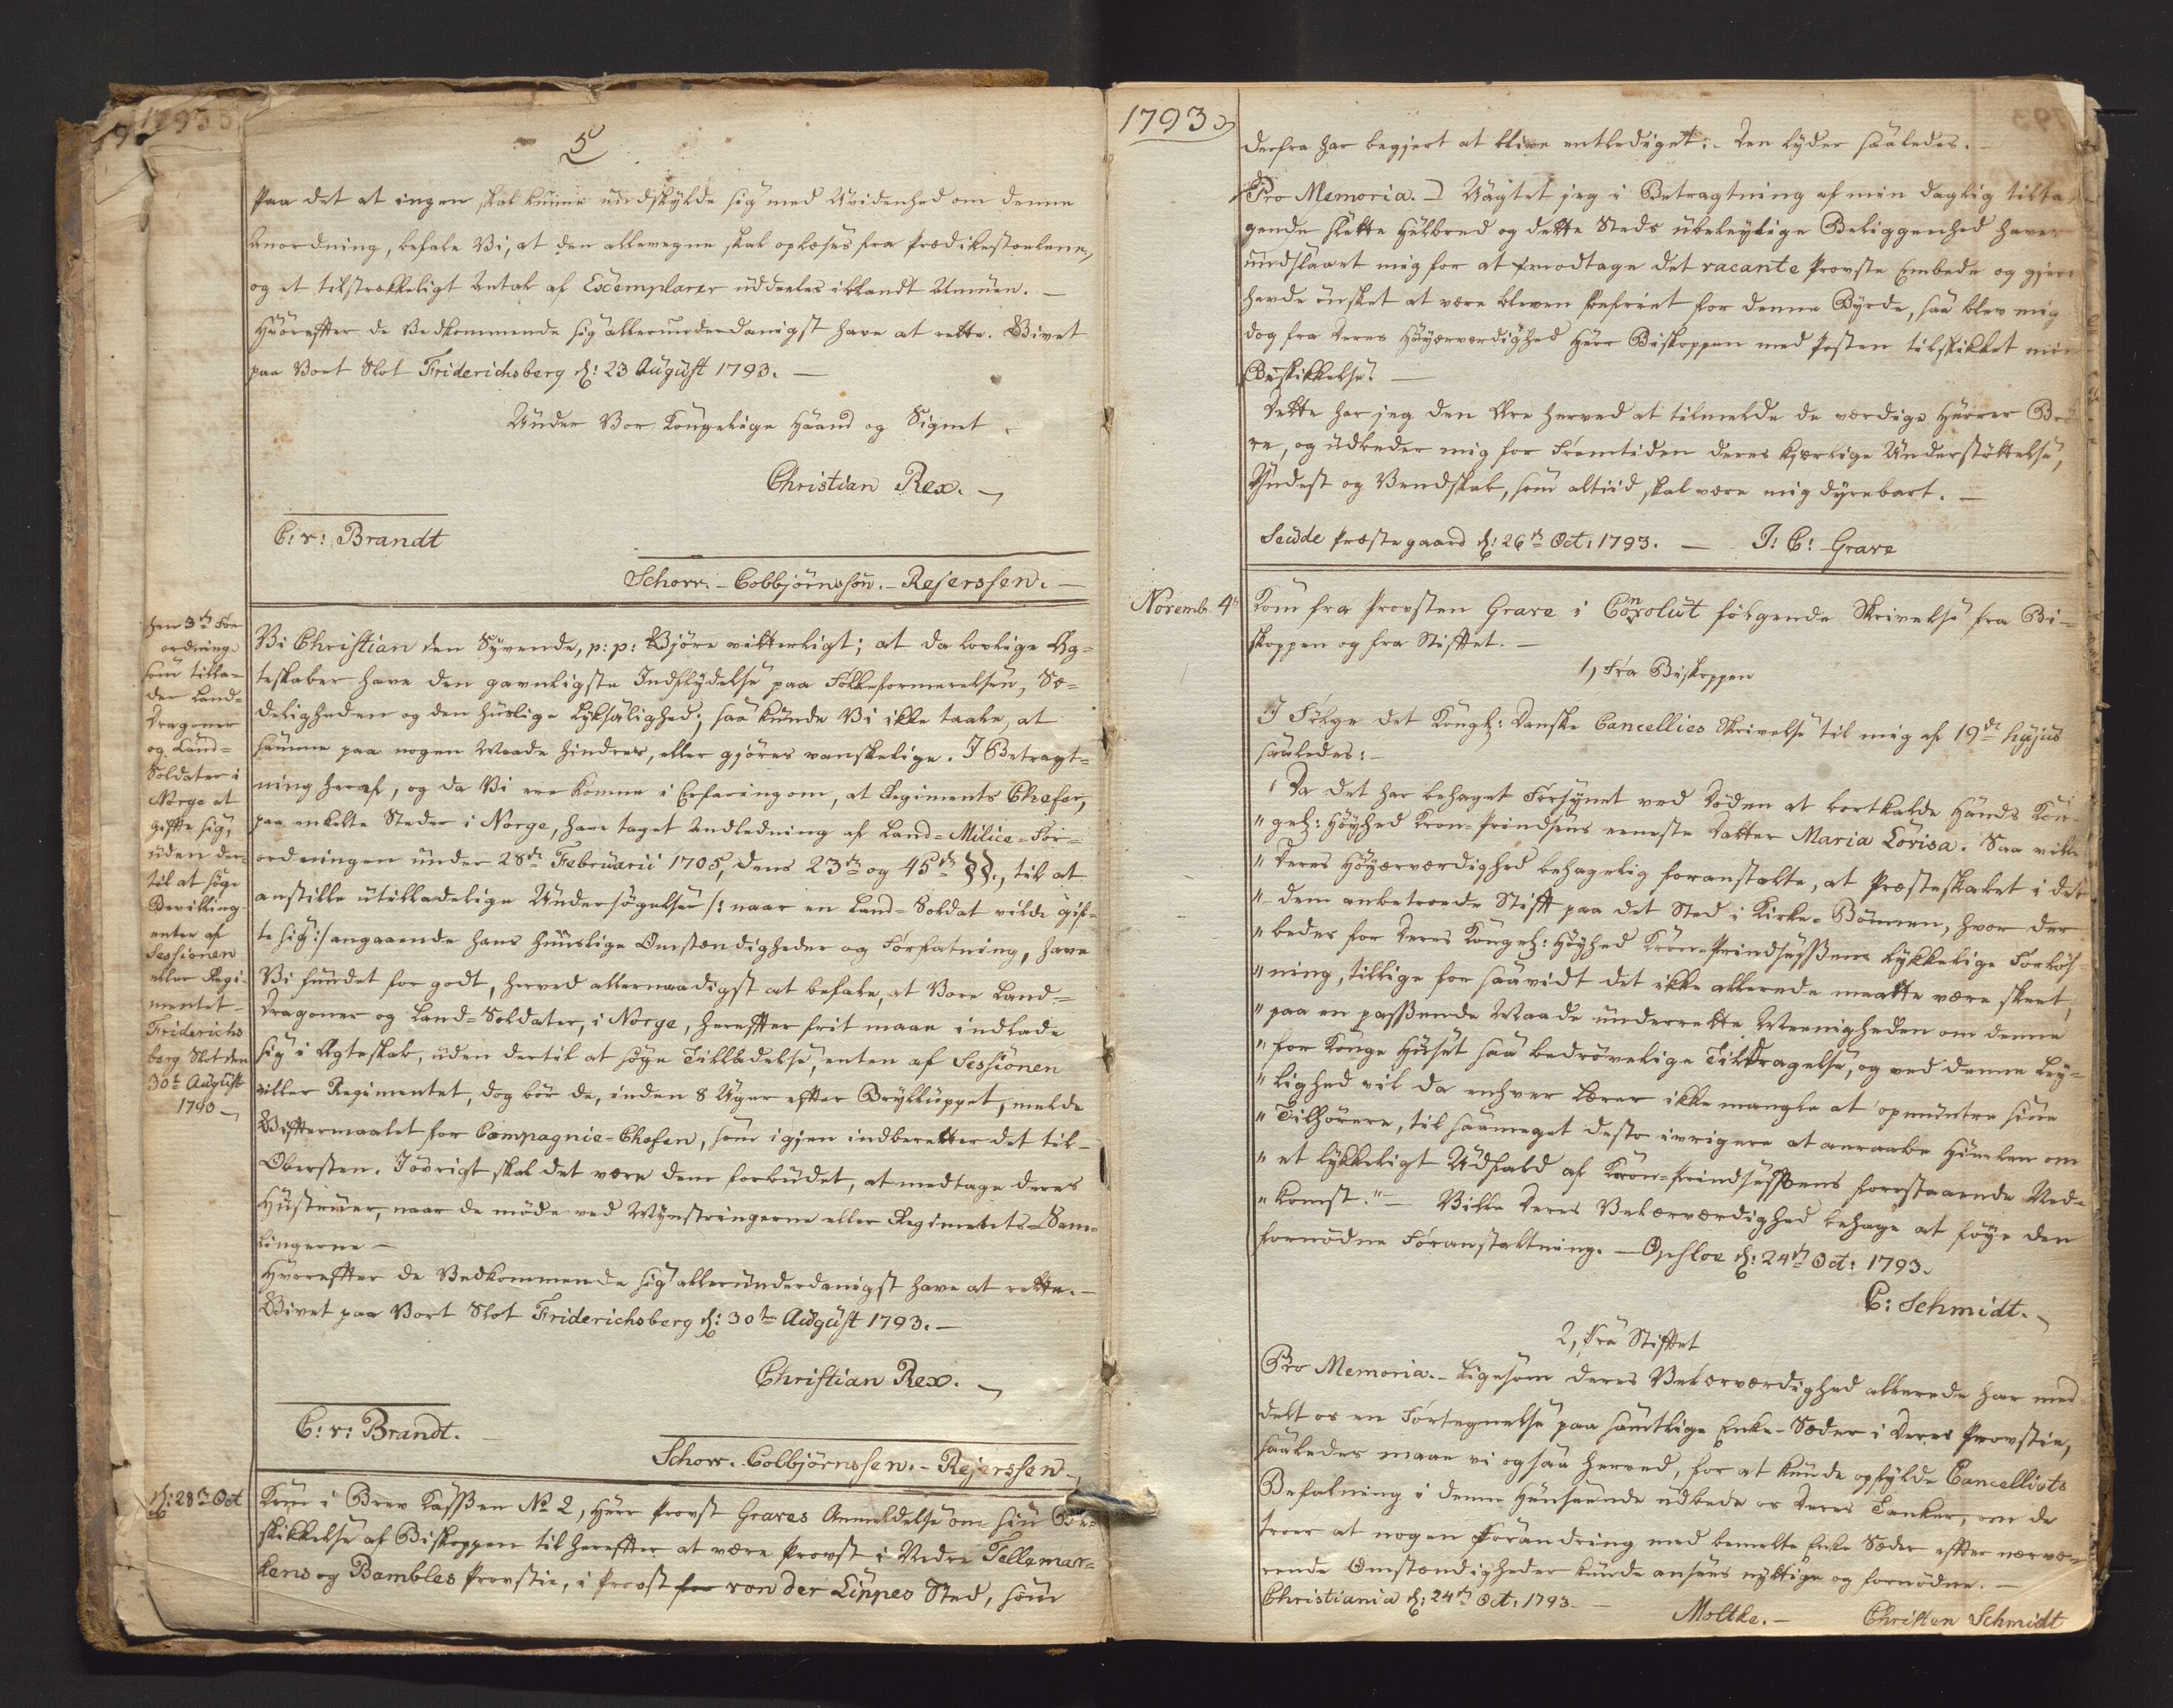 1793
5
Paa det at ingen skal kunne undskylde sig med Uvidenhed om denne
Anordning, befale Vi, at den allevegne skal oplæses fra Prædikestoelene,
og et tilstrækkeligt Antal af Exemplarer uddeeles iblandt Almuen. —
Hvorefter de Vedkommende sig allerunderdanigst have at rette. Givet
paa Vort Slot Friderichsberg d: 23 August 1793. —
Under Vor Kongelige Haand og Signet.
Christian Rex.
C: v: Brandt
Schow. - Colbjørnsson. - Rejerssen. —
Den 3die For
ordning
som tilla=
der Land=
Dragoner
og Land=
Soldater i
Norge at
gifte sig,
uden der=
til at søge
Bevilling
enten af
Sessionen
eller Regi=
mentet -
Friderichs
berg Slot den
30te August
1793
Vi Christian den Syvende, p: p: Giøre vitterligt; at da lovlige Æg=
teskaber have den gavnligste Indflydelse paa Folkeformerelsen, Sæ=
deligheden og den huslige Lyksalighed; saa kunde Vi ikke taale, at
samme paa nogen Maade hindres, eller gjøres vanskelige. I Betragt=
ning heraf, og da Vi ere komne i Erfaring om, at Regiments Chefer,
paa enkelte Steder i Norge, have taget Anledning af Land=Milice=For=
ordningen under 28de Februarii 1705, dens 23de og 45de §§., til at
anstille utilladelige Undersøgelser /: naar en Land=Soldat vilde gif=
te sig :/ angaaende hans huuslige Omstændigheder og Forfatning, have
Vi fundet for godt, herved allernaadigst at befale, at Vore Land=
Dragoner og Land=Soldater, i Norge, herefter frit maae indlade
sig i Ægteskab, uden dertil at søge Tilladelse, enten af Sessionen
eller Regimentet, dog bør de, inden 8 Uger efter Brylluppet, melde
Giftermaalet for Compagnie=Chefen, som igjen indberetter det til
Obersten. I øvrigt skal det være dem forbudet, at medtage deres
Hustruer, naar de møde ved Mynstringerne eller Regiments=Sam=
lingerne —
Hvorefter de Vedkommende sig allerunderdanigst have at rette. —
Givet paa Vort Slot Friderichsberg d: 30te August 1793. —
Christian Rex.
C: v: Brandt.
Schow. Colbjørnssen. - Rejerssen
d: 28de Oct
Kom i Brev Kassen No 2, Herr Provst Graves Anmeldelse om sin Be=
skikkelse af Biskoppen til herefter at være Provst i Nedre Tellemar=
kens og Bambles Provstie, i Provst for von der Lippes Sted, som
1793
derfra har begjert at blive entlediget: Den lyder saaledes. —
Pro Memoria. - Uagtet jeg i Betragtning af min daglig tilta
gende slette Helbred og dette Steds ubeleylige Beliggenhed haver
undslaaet mig for at modtage det vacante Provste Embede og gjer
havde ønsket at være bleven befriet for denne Byrde, saa blev mig
dog fra Deres Høyærværdighed Herr Biskoppen med Posten tilskikket min
Beskikkelse. —
Dette har jeg den Ære herved at tilmelde de værdige Herrer Brø
re, og udbeder mig for Fremtiden deres kjærlige Understøttelse,
Yndest og Venskab, som altiid skal være mig dyrebart. —
Seude Præstegaard d: 26de Oct: 1793. — J: C: Grave
Novemb. 4de
Kom fra Provsten Grave i Convolut følgende Skrivelse fra Bi=
skoppen og fra Stiftet. —
1, Fra Biskoppen
I Følge det Kongel: Danske Cancellies Skrivelse til mig af 19de hujus
saaledes: —
" Da det har behaget Forsynet ved Døden at bortkalde Hands Kon
" gel: Høyhed Kron=Prindsens eeneste Datter Maria Lovisa. Saa ville
" Deres Høyærværdighed behagelig foranstalte, at Præsteskabet i det
" dem anbetroede Stift paa det Sted i Kirke=Bønnen, hvor der
" bedes for Deres Kongel: Høyhed Kron=Prindsessens lykkelige Forløs
" ning, tillige for saavidt det ikke allerede maatte være skeet,
" paa en passende Maade underrette Meenigheden om denne
" for Konge Huset saa bedrøvelige Tildragelse, og ved denne Ley=
" lighed vil da enhver Lærer ikke mangle at opmuntre sine
" Tilhørere, til saameget desto ivrigere at anraabe Himlen om
" et lykkeligt Udfald af Kron=Prindsessens forestaaende Ned=
" komst." — Ville Deres Velærværdighed behage at føye den
fornødne Foranstaltning. — Opsloe d: 24de Oct: 1793.
C: Schmidt.
2, Fra Stiftet
Pro Memoria. - Ligesom Deres Velærværdighed allerede har med
delt os en Fortegnelse paa samtlige Enke=Sæder i Deres Provstie,
saaledes maae vi ogsaa herved, for at kunde opfylde Cancelliets
Befalning i denne Henseende udbede os Deres Tanker, om de
troer at nogen Forandring med bemelte Enke Sæder efter nærvæ=
rende Omstændigheder kunde ansees nyttige og fornødne. —
Christiania d: 24de Oct: 1793 — Moltke. — Christen Schmidt